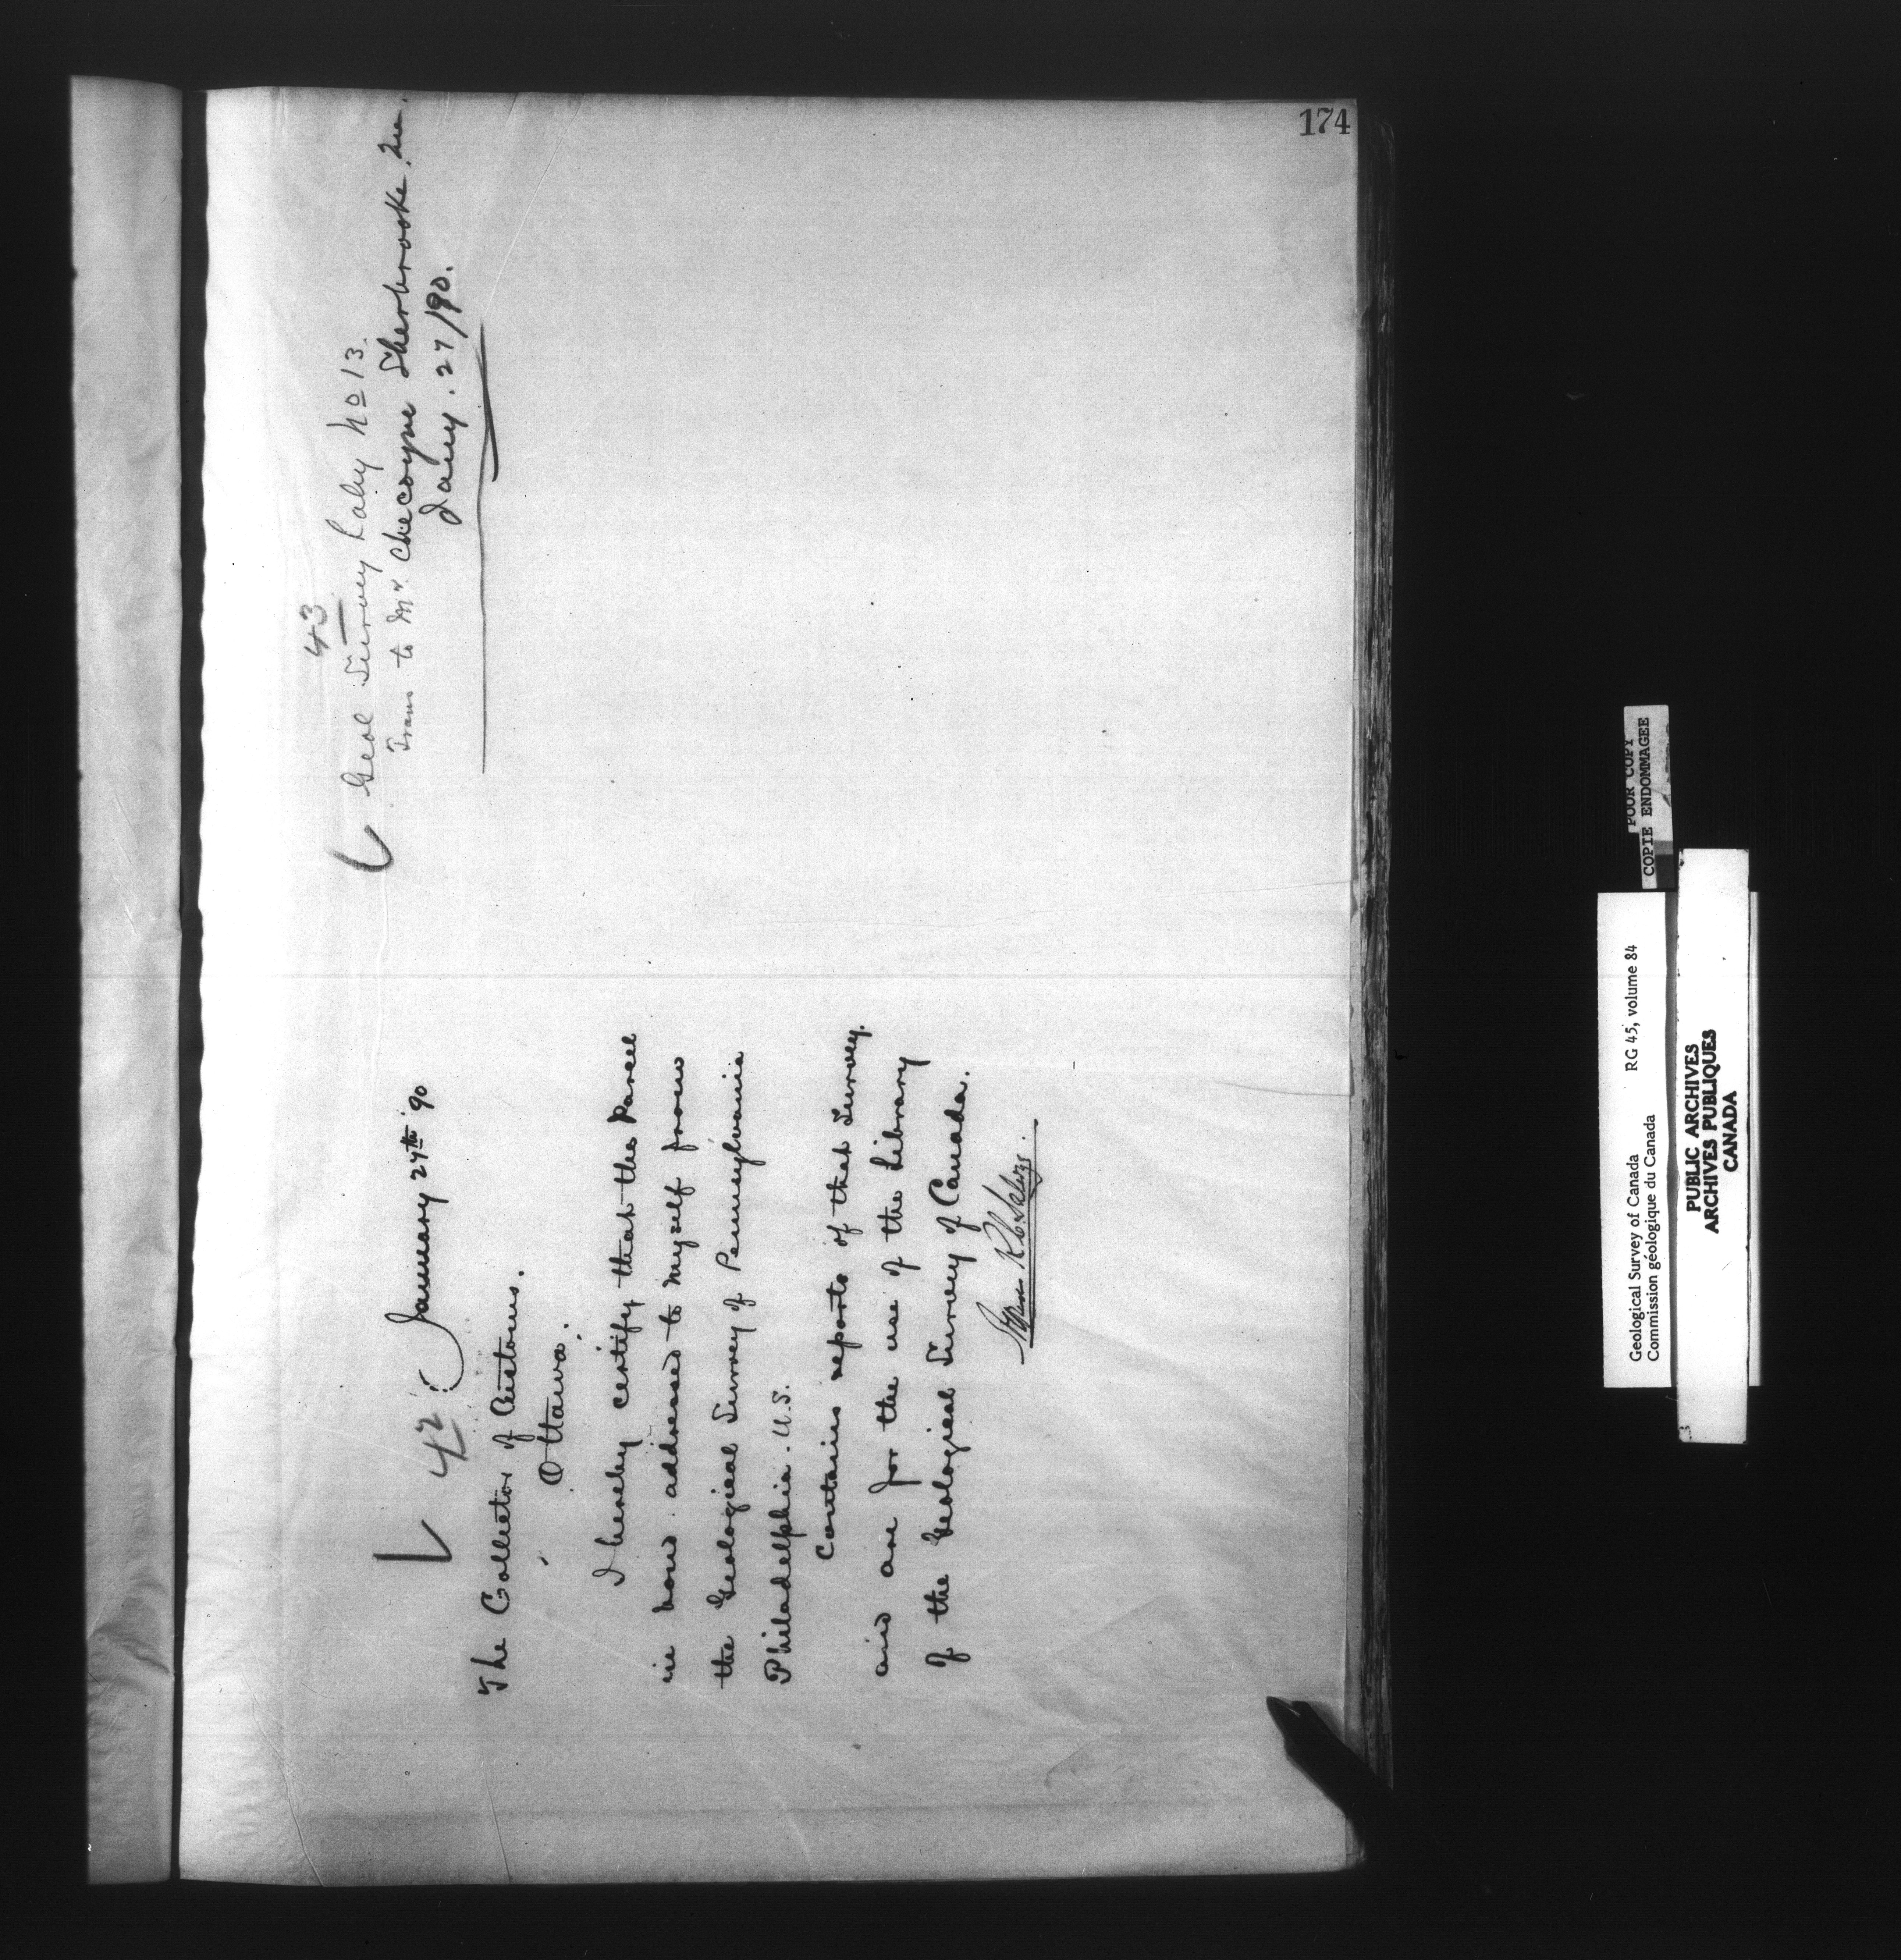 174
42
January 27th '90
The Collector of Customs.
Ottawa.
I hereby certify that the Parcel
in bond addressed to myself from
the Geological Survey of Pennsylvania
Philadelphia. U.S.
Contains reports of that Survey.
and are for the use of the Library
of the Geological Survey of Canada.
43
Geol Survey No 13.
Trans to Mr Chicoyne Sherbrooke. Que.
Jany. 27/90.
POOR COPY
COPIE ENDOMMAGEE
Geological Survey of Canada RG 45, volume 84
Commission géologique du Canada
PUBLIC ARCHIVES
ARCHIVES PUBLIQUES
CANADA